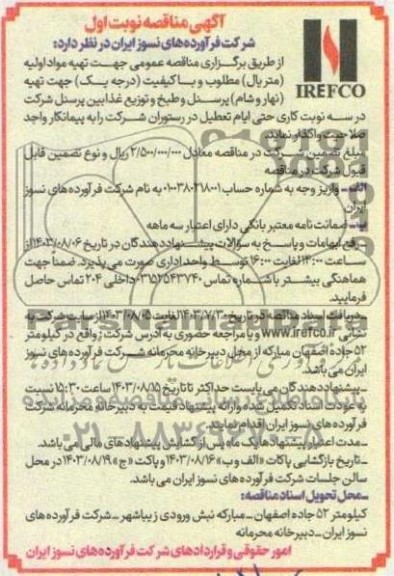 آگهی مناقصه نوبت اول
شرکت فرآورده‌های نسوز ایران در نظر دارد:
IREFCO
از طریق برگزاری مناقصه عمومی جهت تهیه مواد اولیه
(متریال) مطلوب و با کیفیت (درجه یک) جهت تهیه
(نهار و شام) پرسنل و طبخ و توزیع غذا بین پرسنل شرکت
در سه نوبت کاری حتی ایام تعطیل در رستوران شرکت را به پیمانکار واجد
صلاحیت واگذار نمایند.
مبلغ تضمین شرکت در مناقصه معادل ۲/۵۰۰/۰۰۰/۰۰۰ ریال و نوع تضمین قابل
قبول شرکت در مناقصه
الف- واریز وجه به شماره حساب ۰۱۰۰۳۸۰۲۱۸۰۰۱ به نام شرکت فرآورده های نسوز
ایران
ب- ضمانت نامه معتبر بانکی دارای اعتبار سه ماهه
- رفع ابهامات و پاسخ به سوالات پیشنهاد دهندگان در تاریخ ۱۴۰۳/۰۸/۰۶ از
ساعت ۱۴:۰۰ لغایت ۱۶:۰۰ توسط واحد اداری صورت می پذیرد. ضمنا جهت
هماهنگی بیشتر با شماره تماس ۰۳۱۵۲۵۴۳۷۴۰ داخلی ۲۰۴ تماس حاصل
فرمایید.
- دریافت اسناد مناقصه در تاریخ ۱۴۰۳/۷/۳۰ لغایت ۱۴۰۳/۰۸/۰۵ از سایت شرکت به
نشانی www.irefco.ir و یا مراجعه حضوری به آدرس شرکت: واقع در کیلومتر
۵۲ جاده اصفهان مبارکه از محل دبیرخانه محرمانه شرکت فرآورده های نسوز
ایران می باشد.
- پیشنهاد دهندگان می بایست حداکثر تا تاریخ ۱۴۰۳/۰۸/۱۵ ساعت ۱۵:۳۰ نسبت
به عودت اسناد تکمیل شده و ارائه پیشنهاد قیمت به دبیرخانه محرمانه شرکت
فرآورده های نسوز ایران اقدام نمایند.
- مدت اعتبار پیشنهادها یک ماه پس از گشایش پیشنهادهای مالی می باشد.
- تاریخ بازگشایی پاکات «الف و ب» ۱۴۰۳/۰۸/۱۶ و پاکت «ج» ۱۴۰۳/۰۸/۱۹ در محل
سالن جلسات شرکت فرآورده های نسوز ایران می باشد.
- محل تحویل اسناد مناقصه:
کیلومتر ۵۲ جاده اصفهان - مبارکه نبش ورودی زیباشهر - شرکت فرآورده های
نسوز ایران - دبیرخانه محرمانه
امور حقوقی و قراردادهای شرکت فرآورده‌های نسوز ایران